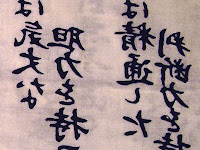 は気丈な
胆力を持
は精通した
判断力を持